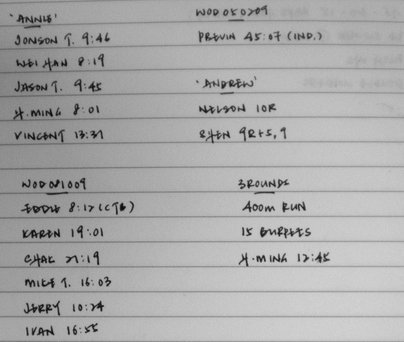 'ANNIE'
JONSON T. 9:46
WEI HAN 8:19
JASON T. 9:45
H.MING 8:01
VINCENT 13:31
WOD 050209
PREVIN 45:07 (IND.)
'ANDREW'
NELSON 10R
SHEN 9R+5,9
WOD 081009
EDDIE 8:12 (CTB)
KAREN 19:01
CHAK 21:19
MIKE T. 16:03
JERRY 10:24
IVAN 16:55
3 ROUNDS
400m RUN
15 BURPEES
H.MING 12:45